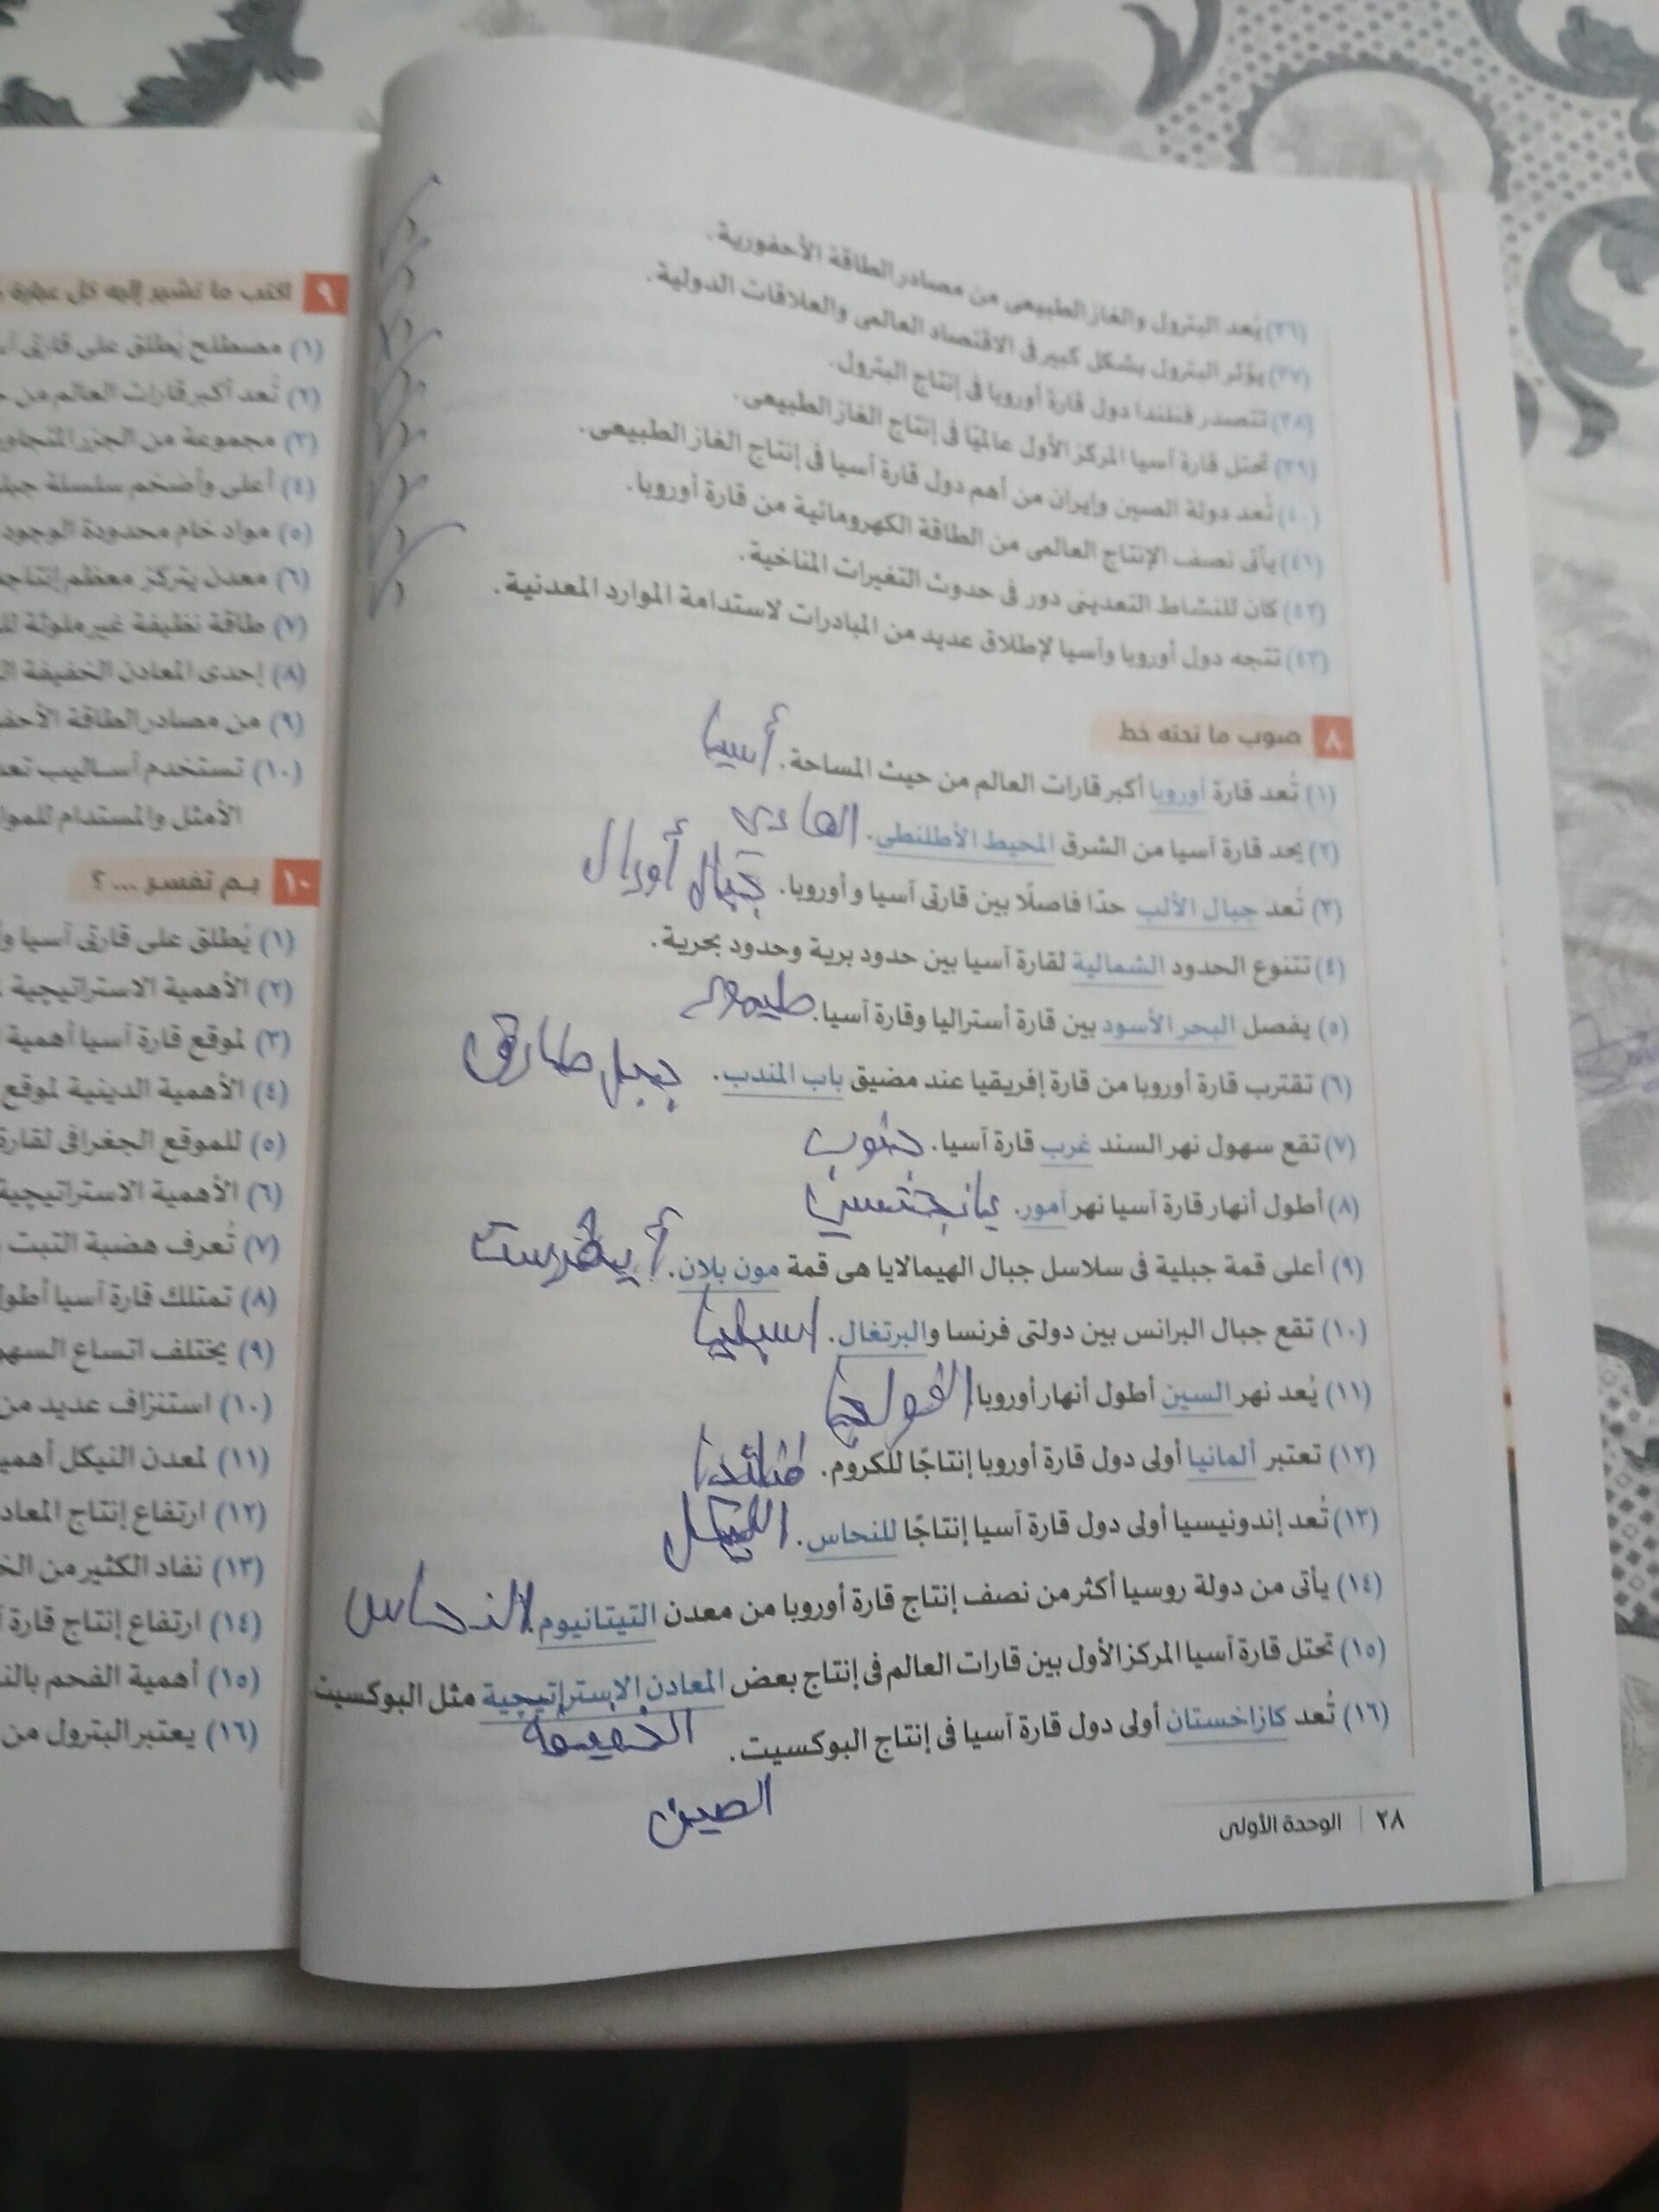 (٣٦) يُعد البترول والغاز الطبيعى من مصادر الطاقة الأحفورية.
(٣٧) يؤثر البترول بشكل كبير فى الاقتصاد العالمى والعلاقات الدولية.
(٣٨) تتصدر فنلندا دول قارة أوروبا فى إنتاج البترول.
(٣٩) تحتل قارة آسيا المركز الأول عالميًا فى إنتاج الغاز الطبيعى.
(٤٠) تُعد دولة الصين وإيران من أهم دول قارة آسيا فى إنتاج الغاز الطبيعى.
(٤١) يأتى نصف الإنتاج العالمى من الطاقة الكهرومائية من قارة أوروبا.
(٤٢) كان للنشاط التعدينى دور فى حدوث التغيرات المناخية.
(٤٣) تتجه دول أوروبا وآسيا لإطلاق عديد من المبادرات لاستدامة الموارد المعدنية.
٨ صوب ما تحته خط
(١) تُعد قارة أوروبا أكبر قارات العالم من حيث المساحة. أسيا
(٢) يحد قارة آسيا من الشرق المحيط الأطلنطى. الهادى
(٣) تُعد جبال الألب حدًا فاصلًا بين قارتى آسيا وأوروبا. جبال أورال
(٤) تتنوع الحدود الشمالية لقارة آسيا بين حدود برية وحدود بحرية.
(٥) يفصل البحر الأسود بين قارة أستراليا وقارة آسيا. طيمور
(٦) تقترب قارة أوروبا من قارة إفريقيا عند مضيق باب المندب. جبل طارق
(٧) تقع سهول نهر السند غرب قارة آسيا. جنوب
(٨) أطول أنهار قارة آسيا نهر آمور. يانجتسى
(٩) أعلى قمة جبلية فى سلاسل جبال الهيمالايا هى قمة مون بلان. أيفرست
(١٠) تقع جبال البرانس بين دولتى فرنسا والبرتغال. اسبانيا
(١١) يُعد نهر السين أطول أنهار أوروبا. الفولجا
(١٢) تعتبر ألمانيا أولى دول قارة أوروبا إنتاجًا للكروم. فنلندا
(١٣) تُعد إندونيسيا أولى دول قارة آسيا إنتاجًا للنحاس. النيكل
(١٤) يأتى من دولة روسيا أكثر من نصف إنتاج قارة أوروبا من معدن التيتانيوم. النحاس
(١٥) تحتل قارة آسيا المركز الأول بين قارات العالم فى إنتاج بعض المعادن الإستراتيجية مثل البوكسيت
الخفيفة
(١٦) تُعد كازاخستان أولى دول قارة آسيا فى إنتاج البوكسيت.
الصين
٢٨ | الوحدة الأولى
٩ اكتب ما تشير إليه كل عبارة
(١) مصطلح يُطلق على قارتى
(٢) تُعد أكبر قارات العالم من
(٣) مجموعة من الجزر المتجاورة
(٤) أعلى وأضخم سلسلة
(٥) مواد خام محدودة الوجود
(٦) معدن يتركز معظم إنتاجه
(٧) طاقة نظيفة غير ملوثة
(٨) إحدى المعادن الخفيفة
(٩) من مصادر الطاقة
(١٠) تستخدم أساليب
الأمثل والمستدام
١٠ بم تفسر ... ؟
(١) يُطلق على قارتى آسيا
(٢) الأهمية الاستراتيجية
(٣) لموقع قارة آسيا أهمية
(٤) الأهمية الدينية لموقع
(٥) للموقع الجغرافى لقارة
(٦) الأهمية الاستراتيجية
(٧) تُعرف هضبة التبت
(٨) تمتلك قارة آسيا
(٩) يختلف اتساع
(١٠) استنزاف عديد من
(١١) لمعدن النيكل
(١٢) ارتفاع إنتاج
(١٣) نفاد الكثير من
(١٤) ارتفاع إنتاج قارة
(١٥) أهمية الفحم
(١٦) يعتبر البترول من